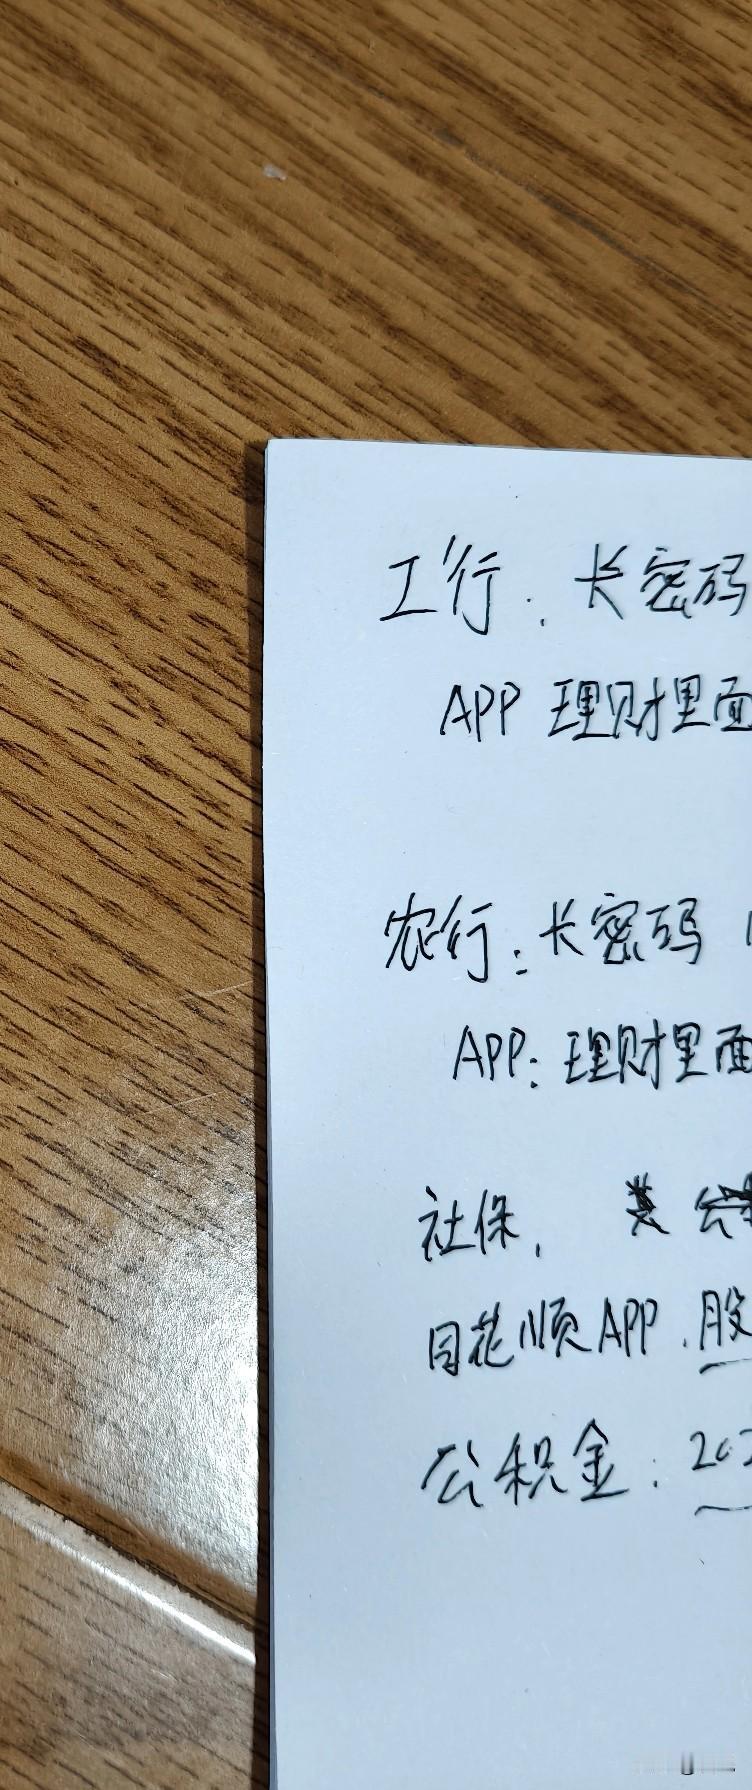 工行. 长密码
APP 理财里面
农行: 长密码
APP: 理财里面
社保,
同花顺APP.股
公积金: 202